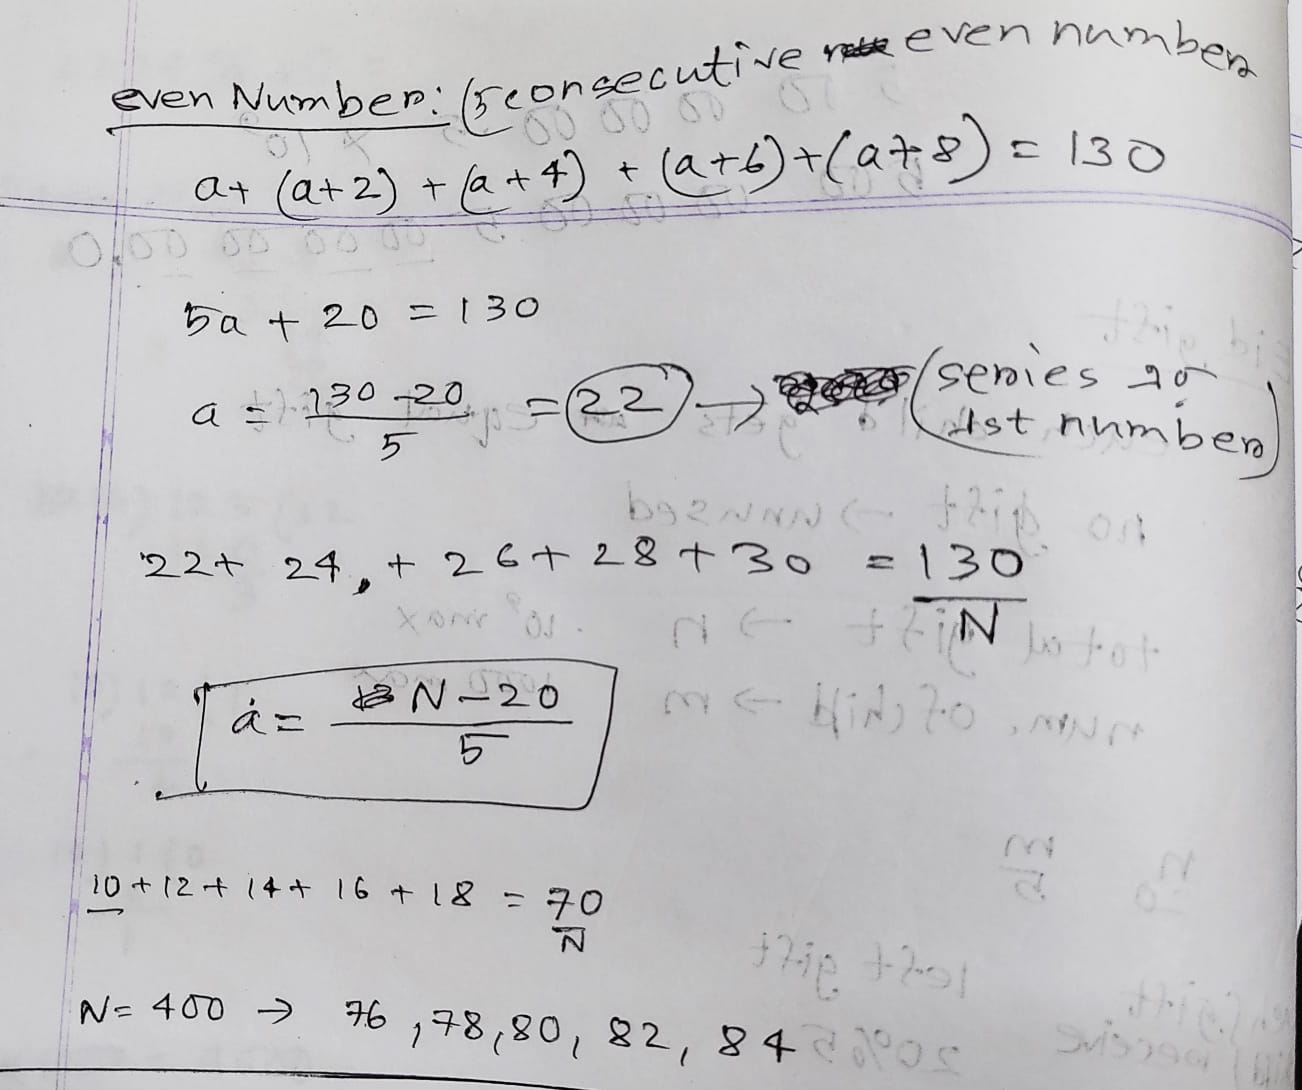 even Number: (5 consecutive even number
a+ (a+2) + (a+4) + (a+6)+(a+8) = 130
5a + 20 = 130
a = 130-20 / 5 = 22 → (series এর
1st number)
22+ 24, + 26+ 28+30 = 130
N
a = N-20 / 5
10+12+14+ 16 + 18 = 70
N
N= 400 → 76, 78, 80, 82, 84